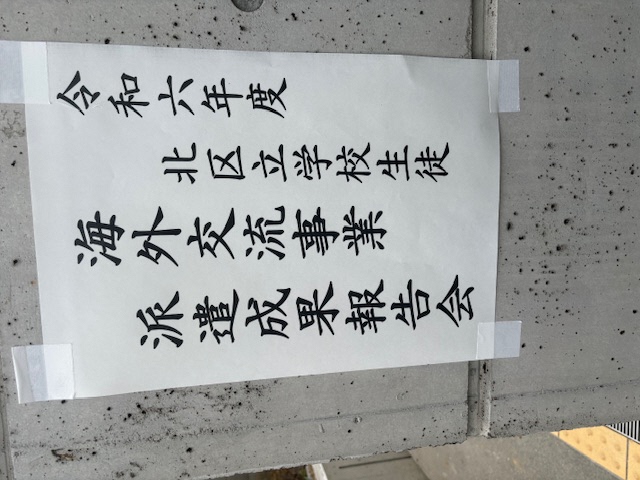 令和六年度
北区立学校生徒
海外交流事業
派遣成果報告会